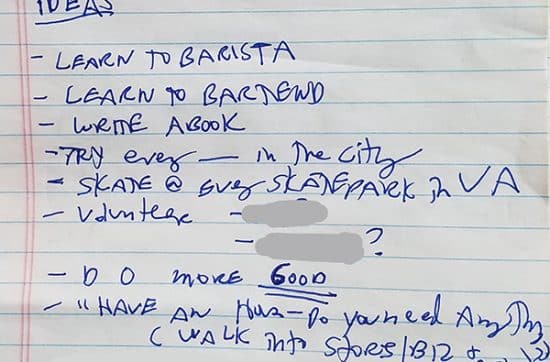 IDEAS
- LEARN TO BARISTA
- LEARN TO BARTEND
- WRITE A BOOK
- TRY every — in The city
- SKATE @ EVERY SKATEPARK in VA
- Volunteer -
- ?
- DO MORE GOOD
- "HAVE AN Hour - Do you need Any Thing
( WALK into STORES / BIZ